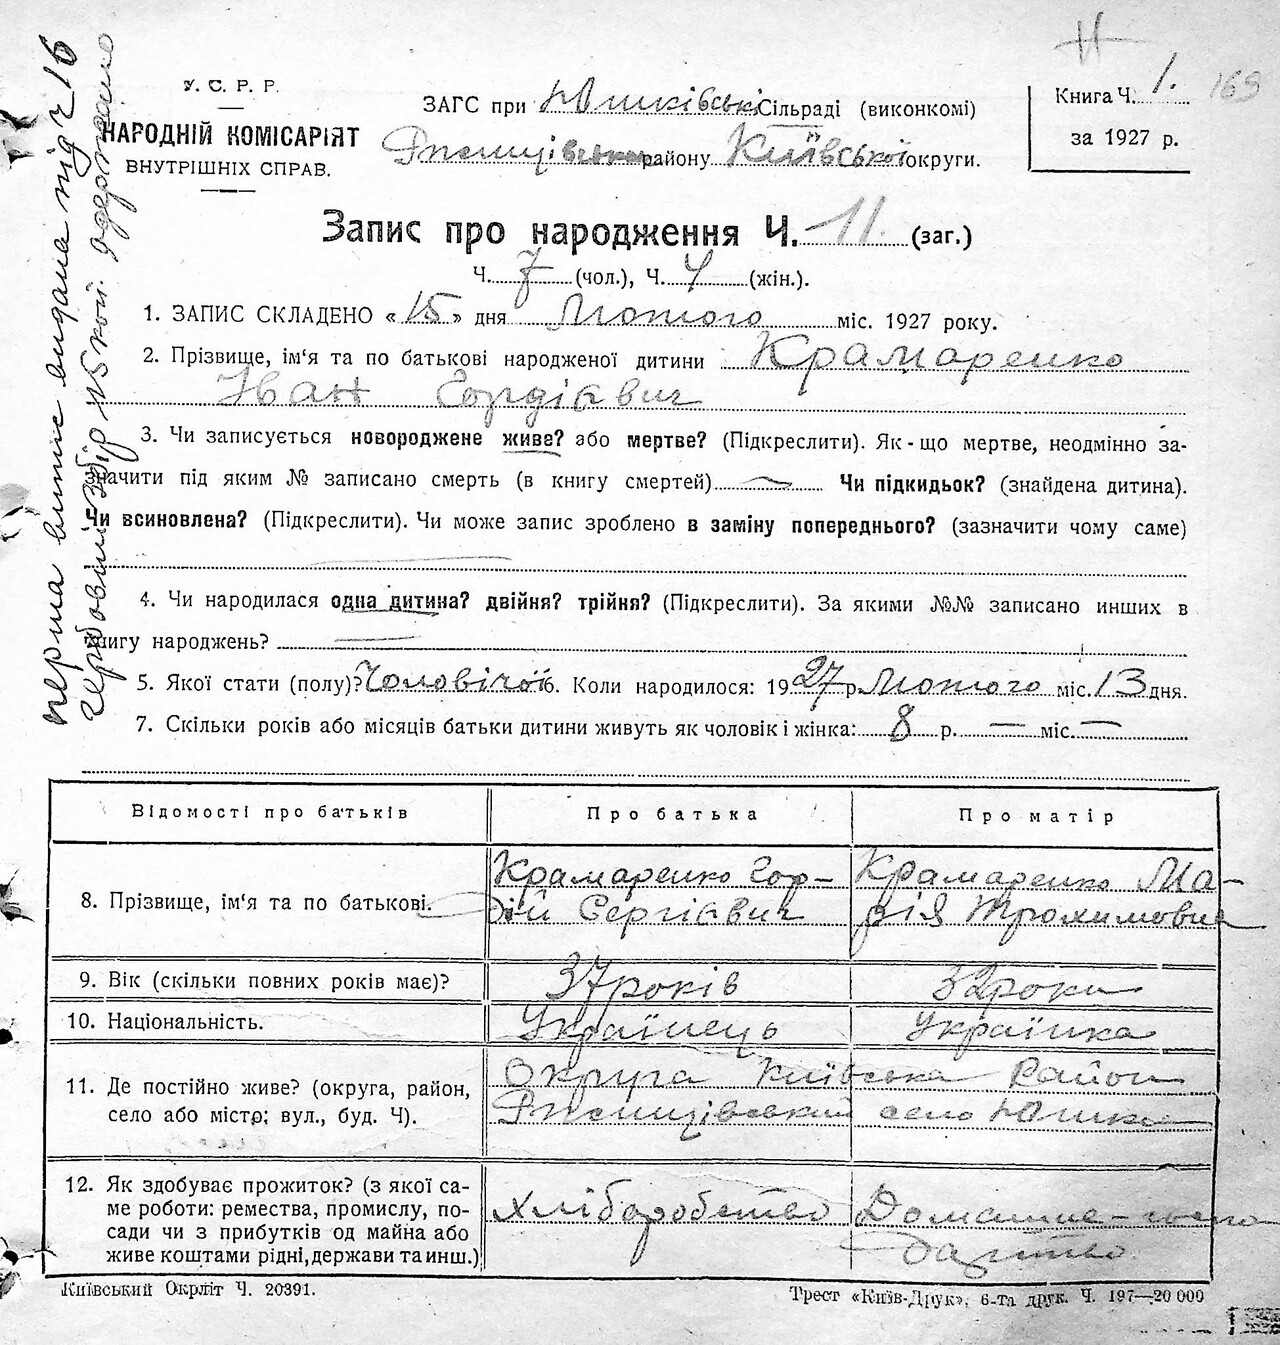 Н
169
У. С. Р. Р.
НАРОДНІЙ КОМІСАРІЯТ
ВНУТРІШНІХ СПРАВ.
ЗАГС при Юшківські Сільраді (виконкомі)
Ржищівського району Київської округи.
Книга Ч. 1.
за 1927 р.
Запис про народження Ч. 11. (заг.)
Ч. 7 (чол.), Ч. 4 (жін.).
1. ЗАПИС СКЛАДЕНО «15» дня Лютого міс. 1927 року.
2. Прізвище, ім'я та по батькові народженої дитини Крамаренко
Іван Гордієвич
3. Чи записується новороджене живе? або мертве? (Підкреслити). Як-що мертве, неодмінно за-
значити під яким № записано смерть (в книгу смертей) — Чи підкидьок? (знайдена дитина).
Чи всиновлена? (Підкреслити). Чи може запис зроблено в заміну попереднього? (зазначити чому саме)
4. Чи народилася одна дитина? двійня? трійня? (Підкреслити). За якими №№ записано инших в
книгу народжень? —
5. Якої стати (полу)? Чоловічої 6. Коли народилося: 1927 р. Лютого міс. 13 дня.
7. Скільки років або місяців батьки дитини живуть як чоловік і жінка: 8 р. — міс. —
Відомості про батьків Про батька Про матір
8. Прізвище, ім'я та по батькові. Крамаренко Гор-дій Сергієвич Крамаренко Ма-рія Трохимовна
9. Вік (скільки повних років має)? 37 років 32 роки
10. Національність. Українець Українка
11. Де постійно живе? (округа, район, Округа Київська Район
село або місто; вул., буд. Ч). Ржищівський село Юшки
12. Як здобуває прожиток? (з якої са-
ме роботи: ремества, промислу, по- Хліборобство Домашнє-госпо
сади чи з прибутків од майна або дарство
живе коштами рідні, держави та инш.)
Київський Окрліт Ч. 20391.
Трест «Київ-Друк», 6-та друк. Ч. 197—20 000
перша випис видана під ч 16
гербовий збір 15 коп. одержано